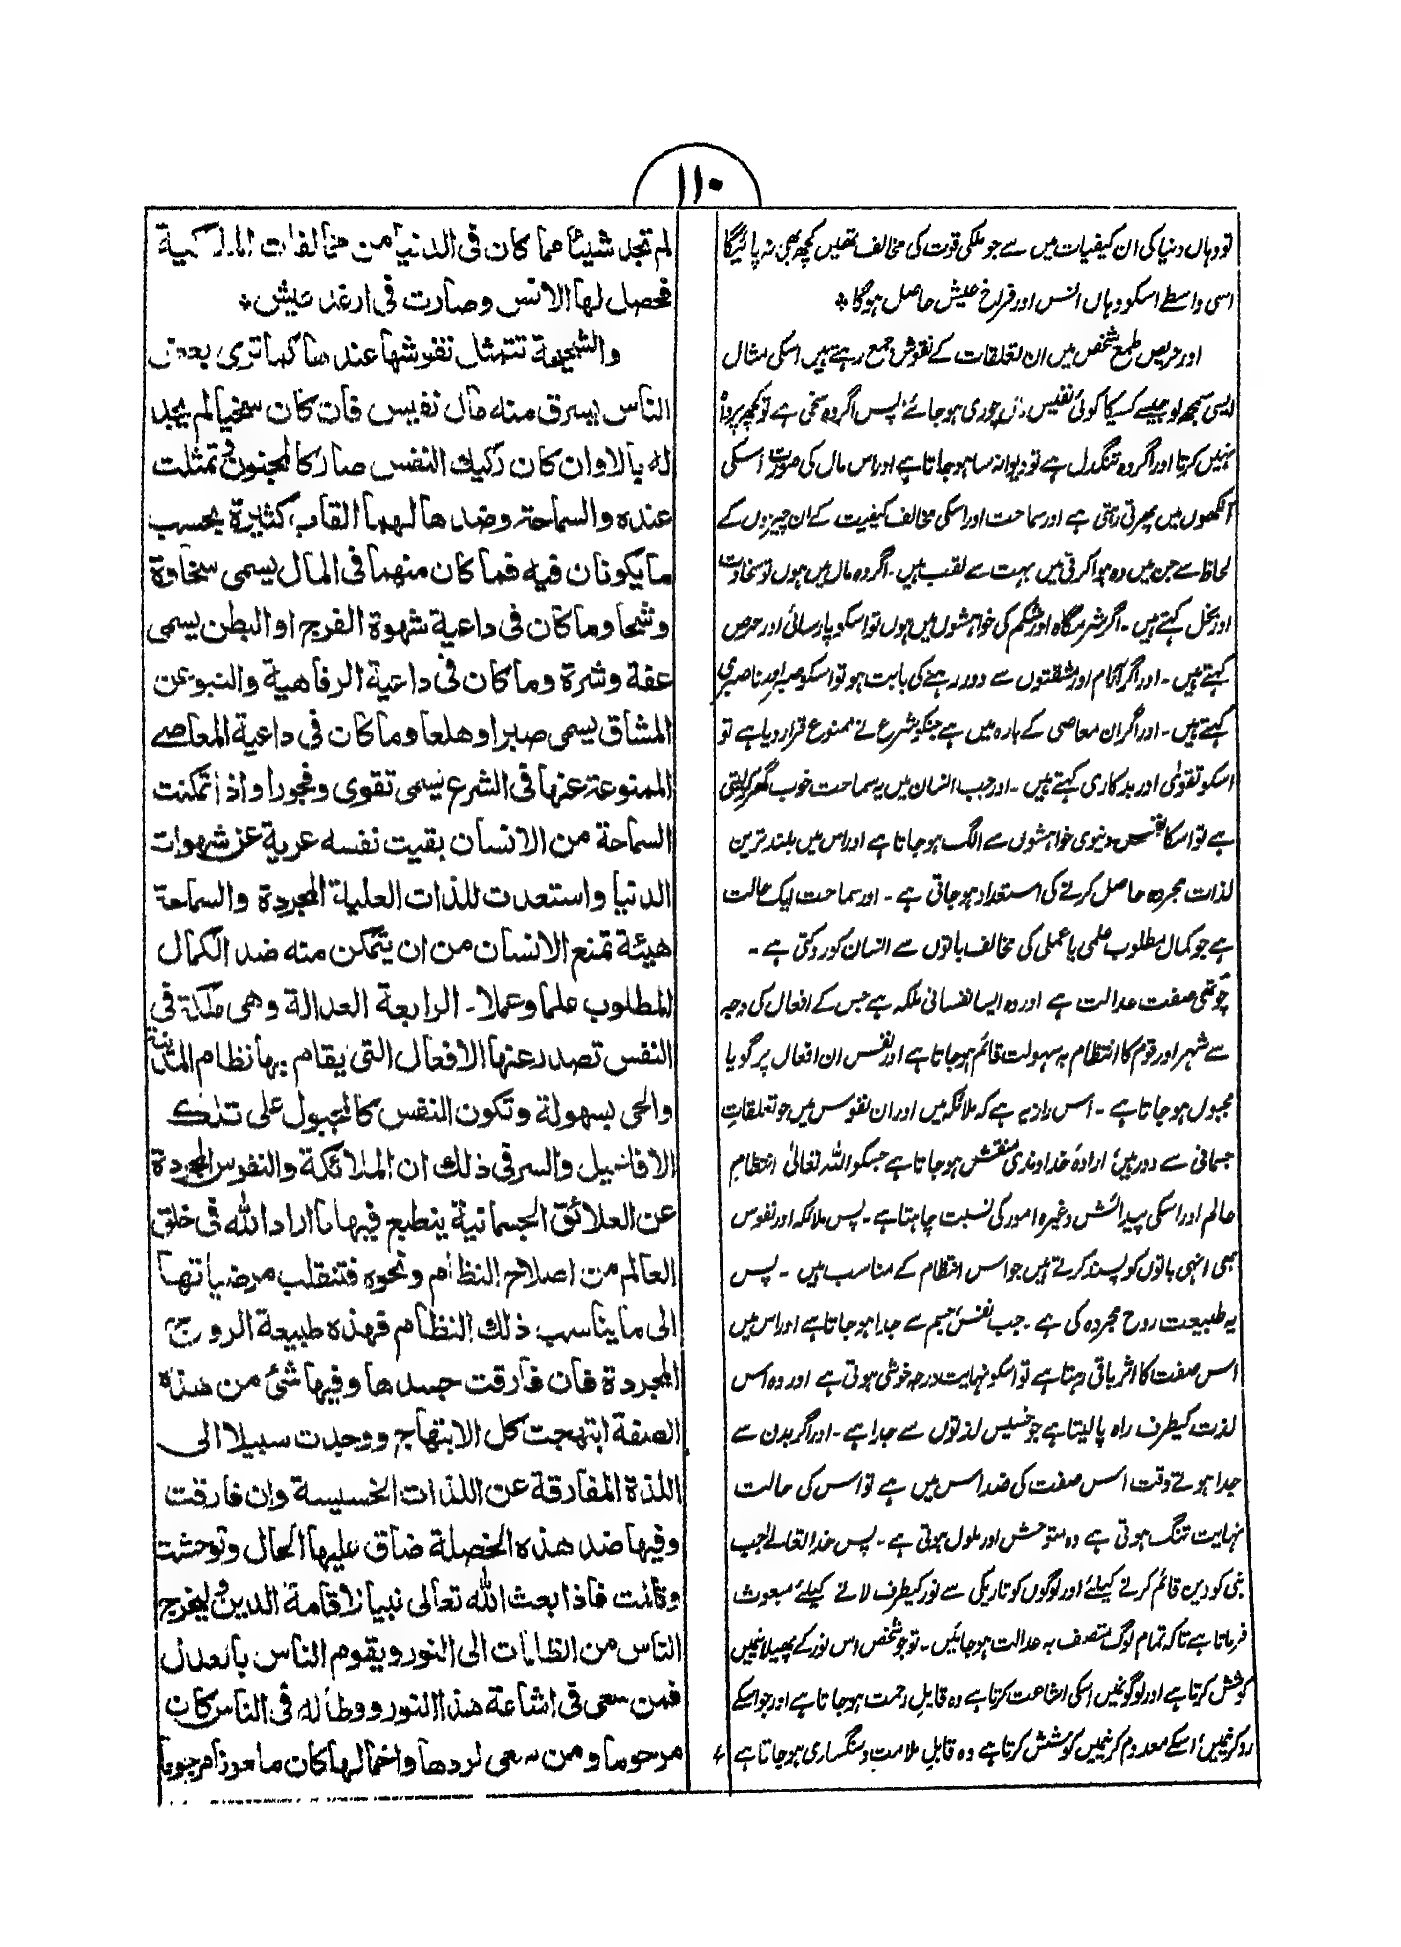 ۱۱۰
تو وہاں دنیا کی ان کیفیات میں سے جو ملکی قوت کی مخالف تھیں کچھ بھی نہ پائیگا
اسی واسطے اسکو وہاں انس اور فراخ عیش حاصل ہوگا *
اور حریص طمع شخص میں ان تعلقات کے نقوش جمع رہتے ہیں اسکی مثال
ایسی سمجھ لو جیسے کسیکا کوئی نفیس مال چوری ہو جائے پس اگر وہ سخی ہے تو کچھ پروا
نہیں کرتا اور اگر وہ تنگدل ہے تو دیوانہ سا ہو جاتا ہے اور اس مال کی صورت اسکی
آنکھوں میں پھرتی رہتی ہے اور سماحت اور اسکی مخالف کیفیت کے ان چیزوں کے
لحاظ سے جن میں وہ ہوا کرتی ہیں بہت سے لقب ہیں ۔ اگر وہ مال میں ہوں تو سخاوت
اور بخل کہتے ہیں ۔ اگر شرمگاہ اور شکم کی خواہشوں میں ہوں تو اسکو پارسائی اور حرص
کہتے ہیں ۔ اور اگر آرام اور مشقتوں سے دور رہنے کی بابت ہو تو اسکو صبر اور ناصبری
کہتے ہیں ۔ اور اگر ان معاصی کے بارہ میں ہے جنکو شرع نے ممنوع قرار دیا ہے تو
اسکو تقویٰ اور بدکاری کہتے ہیں ۔ اور جب انسان میں یہ سماحت خوب گھر کرلیتی
ہے تو اسکا نفس دنیوی خواہشوں سے الگ ہو جاتا ہے اور اس میں بلند ترین
لذات مجردہ حاصل کرنے کی استعداد ہو جاتی ہے ۔ اور سماحت ایک حالت
ہے جو کمال مطلوب علمی یا عملی کی مخالف باتوں سے انسان کو روکتی ہے ۔
چوتھی صفت عدالت ہے اور وہ ایسا نفسانی ملکہ ہے جس کے افعال کی وجہ
سے شہر اور قوم کا انتظام بہ سہولت قائم ہو جاتا ہے اور نفس ان افعال پر گویا
مجبول ہو جاتا ہے ۔ اس راز یہ ہے کہ ملائکہ میں اور ان نفوس میں جو تعلقات
جسمانی سے دور ہیں ارادۂ خداوندی منقش ہو جاتا ہے جسکو اللہ تعالیٰ انتظام
عالم اور اسکی پیدائش وغیرہ امور کی نسبت چاہتا ہے ۔ پس ملائکہ اور نفوس
بھی انہی باتوں کو پسند کرتے ہیں جو اس انتظام کے مناسب ہیں ۔ پس
یہ طبیعت روح مجردہ کی ہے ۔ جب نفس جسم سے جدا ہو جاتا ہے اور اس میں
اس صفت کا اثر باقی رہتا ہے تو اسکو نہایت درجہ خوشی ہوتی ہے اور وہ اس
لذت کیطرف راہ پا لیتا ہے جو خسیس لذتوں سے جدا ہے ۔ اور اگر بدن سے
جدا ہوتے وقت اس صفت کی ضد اس میں ہے تو اس کی حالت
نہایت تنگ ہوتی ہے وہ متوحش اور ملول ہوتی ہے ۔ پس خدا تعالے جب
نبی کو دین قائم کرنے کیلئے اور لوگوں کو تاریکی سے نور کیطرف لانے کیلئے مبعوث
فرماتا ہے تاکہ تمام لوگ متصف بہ عدالت ہو جائیں ۔ تو جو شخص اس نور کے پھیلانیمیں
کوشش کرتا ہے اور لوگونمیں اسکی اشاعت کرتا ہے وہ قابل رحمت ہو جاتا ہے اور جو اسکے
رد کرنیمیں اسکے معدوم کرنیمیں کوشش کرتا ہے وہ قابل ملامت و سنگساری ہو جاتا ہے
لم تجد شیئا مما کان فی الدنیا من مخالفات الملکیة
فحصل لہا الانس وصارت فی ارغد عیش *
والشحیحة تتمثل نفوشہا عندہا کما تری بعض
الناس یسرق منہ مال نفیس فان کان سخیا لم یجد
لہ بالا وان کان رکیک النفس صار کالمجنون وتمثلت
عندہ والسماحة وضدہا لہما القاب کثیرة بحسب
ما یکونان فیہ فما کان منہما فی المال یسمی سخاوة
وشحا وما کان فی داعیة شہوة الفرج او البطن یسمی
عفة وشرة وما کان فی داعیة الرفاہیة والنبو عن
المشاق یسمی صبرا وہلعا وما کان فی داعیة المعاصے
الممنوعة عنہا فی الشرع یسمی تقوی وفجورا واذا تمکنت
السماحة من الانسان بقیت نفسہ عریة عن شہوات
الدنیا واستعدت للذات العلیة المجردة والسماحة
ہیئة تمنع الانسان من ان یتمکن منہ ضد الکمال
المطلوب علما وعملا ۔ الرابعة العدالة وہی ملکة فی
النفس تصدر عنہا الافعال التی یقام بہا نظام المدینة
والحی بسہولة وتکون النفس کالمجبول علی تلک
الافاعیل والسر فی ذلک ان الملائکة والنفوس المجردة
عن العلائق الجسمانیة ینطبع فیہا ما اراد اللہ فی خلق
العالم من اصلاح النظام ونحوہ فتنقلب مرضیاتہا
الی ما یناسب ذلک النظام فہذہ طبیعة الروح
المجردة فان فارقت جسدہا وفیہا شئ من ہذہ
الصفة ابتہجت کل الابتہاج ووجدت سبیلا الی
اللذة المفارقة عن اللذات الخسیسة وان فارقت
وفیہا ضد ہذہ الخصلة ضاق علیہا الحال وتوحشت
وتالمت فاذا بعث اللہ تعالی نبیا لاقامة الدین ولیخرج
الناس من الظلمات الی النور ویقوم الناس بالعدل
فمن سعی فی اشاعة ہذا النور ووطأ لہ فی الناس کان
مرحوما ومن سعی لردہا واخمالہا کان ملعونا مرجوما